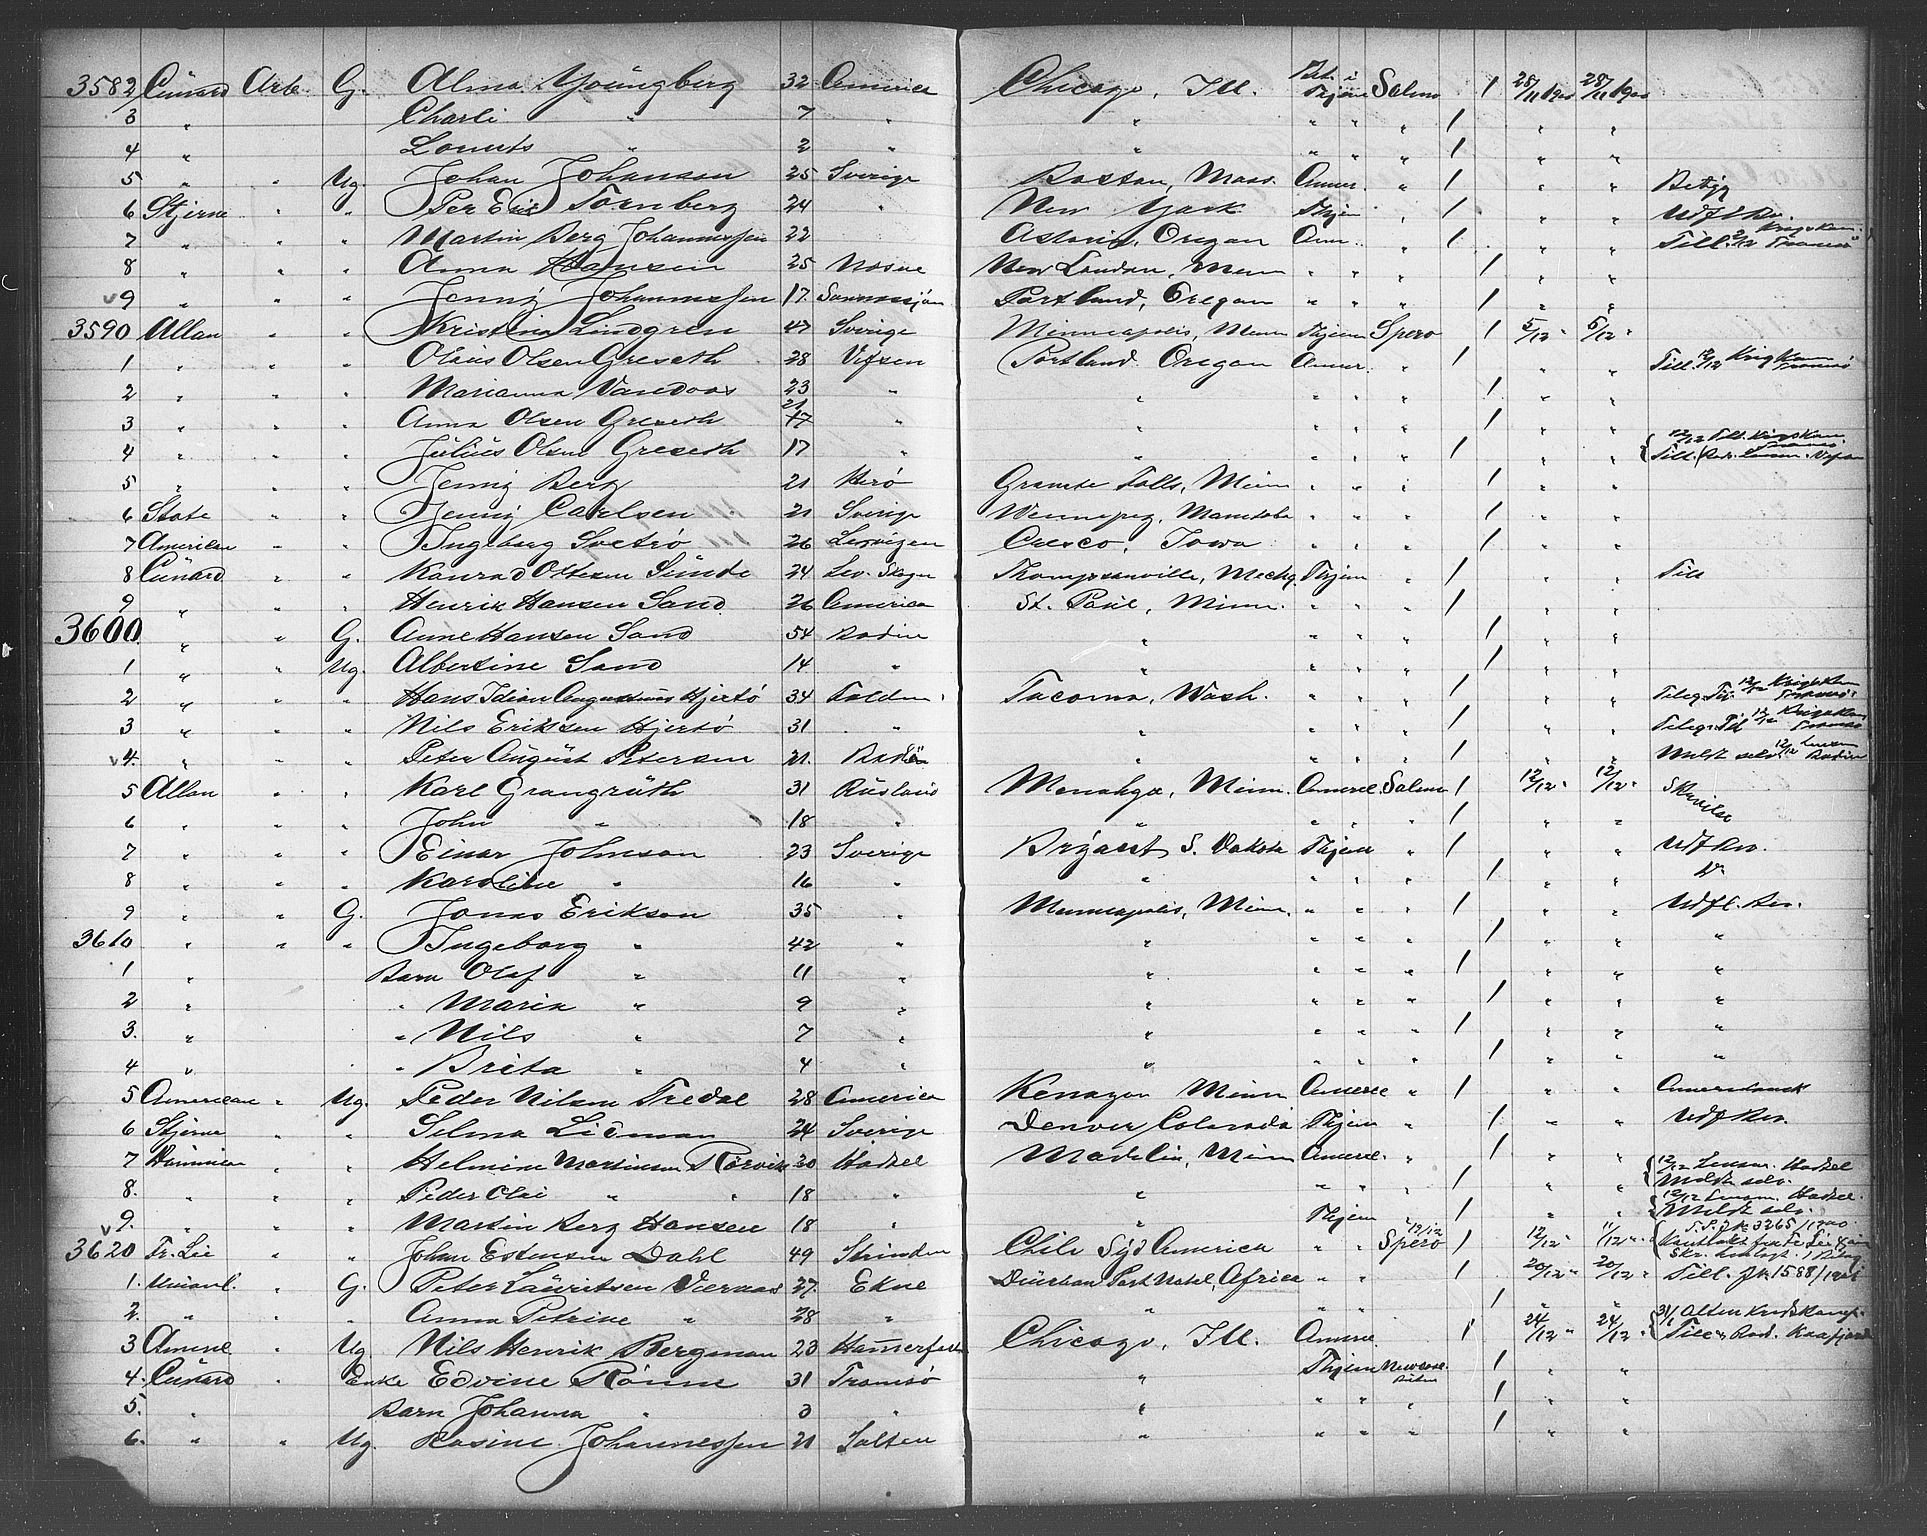 3582 Cunard Arb. G. Alma Youngberg 32 America Chicago, Ill. Bet. i Thjem Salmo 1 28/11 1900 28/11 1900
3 " Charli " 7 " " " " " 1 " "
4 " " 2 " " " " " 1 " "
5 " " Ug. Johan Johanson 25 Sverige Boston, Mass. Amer. " 1 " "
6 Stjerne " " Per Erik Tornberg 24 " New York Thjem " 1 " " Udfl. Rv.
7 " " " Martin Berg Johannessen 22 Astoria, Oregon Am. " 1 " " Till.
8 " " " Anna Hansen 25 New London, Minn " " " 1 " "
v9 " " " Jenny Johannessen 17 Portland, Oregon " " " 1 " "
3590 Allan " " Kristina Lindgren 47 Sverige Minneapolis, Minn Thjem Spero 1 5/12 " 5/12 "
1 " " " Olaus Olsen Greseth 28 Vefsen Portland Oregon Amer. " 1 " " Till. 12/12
2 " " " Marianna 23 " " " " " 1 " "
3 " " " Anna Olsen Greseth 21 " " " " " 1 " "
4 " " " Julius Olsen Greseth 17 " " " " " 1 " " 12/12 Till.
5 " " " Jenny Berg 21 Herø Granite Falls, Minn " " " 1 " "
6 State " " Jenny Carlsen 21 Sverige Winnepeg, Manitoba " " " 1 " "
7 American " " Ingeborg 26 Cresco, Iowa " " " 1 " "
8 Cunard " " Konrad Ottesen Sunde 24 Thompsonville, Mechg. Thjem " 1 " " Till
9 " " Henrik Hansen Sand 26 America St. Paul, Minn. " " " 1 " "
3600 " " G. Anne Hansen Sand 54 Bodin " " " " 1 " "
1 " " Ug. Albertine Sand 14 " " " " " 1 " "
2 " " " Hans Idian Augustinus Hjertø 34 Tacoma, Wash. " " " 1 " " Telegr. Till 12/12
3 " " " Nils Eriksen Hjertø 31 " " " " " 1 " " Telegr. Till 12/12
v4. " " " Peter August Petersen 21 " " " " 1 " " Meldt selv 12/12 Bodin
5 Allan " " Karl Grangruth 31 Rusland Menahga, Minn. Amerik. Salmo 1 12/12 " 12/12 "
6 " " " John " 18 " " " " " 1 " "
7 " " " Einar Johnson 23 Sverige Bryant S. Dakota Thjem " 1 " " Udfl. Rv.
8 " " " Karoline " 16 " " " " " 1 " "
9 " " G. Jonas Erikson 35 " Minneapolis, Minn. " " " 1 " " Udfl. Rv.
3610 " " " Ingeborg " 42 " " " " " 1 " " "
1 " Barn Olaf " 11 " " " " " 1 " " "
2 " " Maria " 9 " " " " " 1 " " "
3. " " Nils " 7 " " " " " 1 " " "
4 " " Brita " 4 " " " " " 1 " " "
5 American " Ug. Peder Nilsen Tredal 28 America Kenayon Minn Amerik " 1 " "
6 Stjerne " " Selma Lidman 24 Sverige Denver Colorado Thjem " 1 " " Udfl. Rv.
7 Dominion " " Helmine Martinsen Rørvik 20 Hadsel Madelia, Minn Amerik. " 1 " " 12/12 Lensm. Hadsel Meldt selv.
8. " " " Peder Olai " " 18 " " " " " 1 " " 12/12 Lensm. Hadsel.
v9. " " " Martin Berg Hansen 18 " " Thjem " 1 " " Meldt selv.
3620 Fr. Lie " " Johan Estensen Dahl 49 Strinden Chili Syd America " " 12/12 Spero 1 12/12 " 11/12 " 3265/1900
1. " G. Peter Lauritsen 27 Ekne Durban Port Natal, Africa " " 1 20/12 " 20/12 " Till. Jk 1588/1901
2. " " " Anna Petrine " 28 " " " " 1 " "
3 Amerik " Ug Nils Henrik Bergman 23 Hammerfest Chicago, Ill. Amerik. 1 24/12 " 24/12 " 31/1 Alten
4. Cunard " Enke Edvine Rønne 31 Tromsø " Thjem 1 " "
5. " Barn Johanna " 3 " " " " " 1 " "
6. " " Ug. Rasine Johannessen 21 Salten " " " " 1 " "